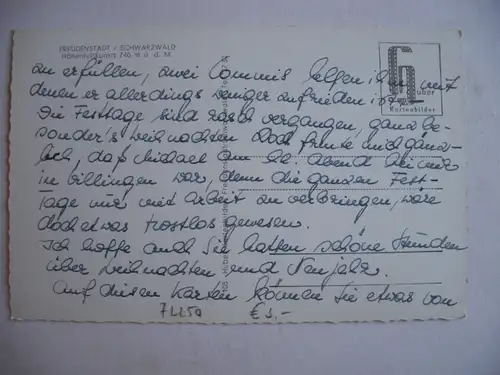 FREUDENSTADT / SCHWARZWALD
Höhenluftkurort 740 m ü. d. M.
über
Kartenbilder
zu erfüllen, zwei Commis helfen ihm, mit
denen er allerdings weniger zufrieden ist.
Die Festtage sind rasch vergangen, ganz be-
sonder's Weihnachten. Doch freute mich
daß Michael am Hl. Abend bei mir
in Villingen war, denn die ganzen Fest-
tage nur mit Arbeit zu verbringen, wäre
doch etwas trostlos gewesen.
Ich hoffe auch Sie hatten schöne Stunden
über Weihnachten und Neujahr.
Auf diesen Karten können Sie etwas von
71250 € 3.-